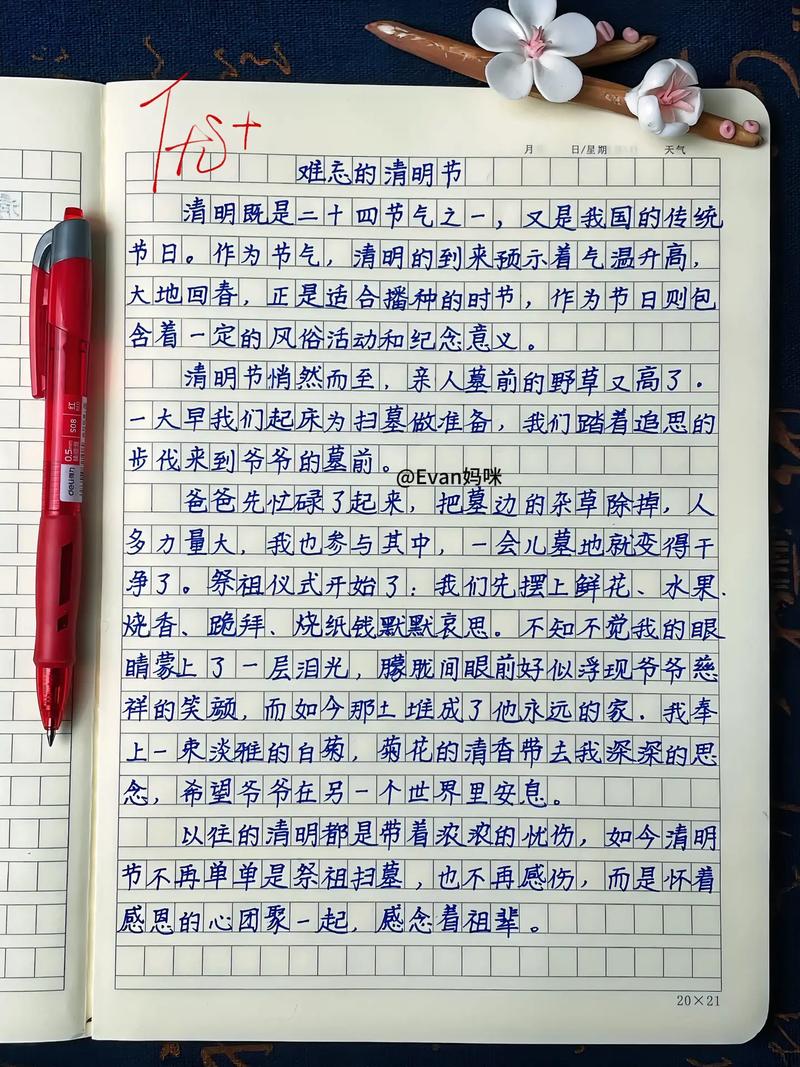 优+
月 日/星期 天气
难忘的清明节
清明既是二十四节气之一，又是我国的传统
节日。作为节气，清明的到来预示着气温升高，
大地回春，正是适合播种的时节，作为节日则包
含着一定的风俗活动和纪念意义。
清明节悄然而至，亲人墓前的野草又高了．
一大早我们起床为扫墓做准备，我们踏着追思的
步伐来到爷爷的墓前。
@Evan妈咪
爸爸先忙碌了起来，把墓边的杂草除掉，人
多力量大，我也参与其中，一会儿墓地就变得干
净了。祭祖仪式开始了：我们先摆上鲜花、水果．
烧香、跪拜、烧纸钱默默哀思。不知不觉我的眼
睛蒙上了一层泪光，朦胧间眼前好似浮现爷爷慈
祥的笑颜，而如今那土堆成了他永远的家．我奉
上一束淡雅的白菊，菊花的清香带去我深深的思
念，希望爷爷在另一个世界里安息。
以往的清明都是带着浓浓的忧伤，如今清明
节不再单单是祭祖扫墓，也不再感伤，而是怀着
感恩的心团聚一起，感念着祖辈。
20×21
deli 得力
0.5mm
S08
红